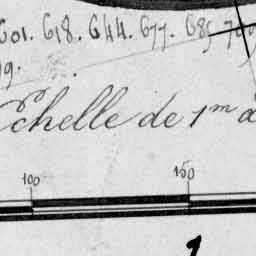 601. 618. 644. 677. 685
9.
Echelle de 1m
100 150